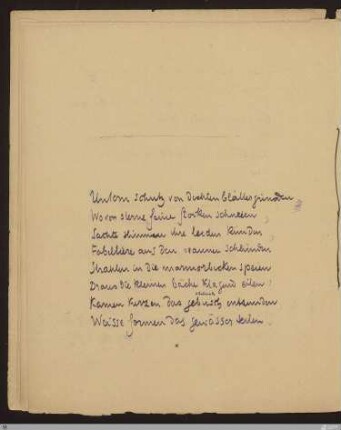 Unterm schutz von dichten blättergründen
Wo von sterne feine flocken schneien
Sachte stimmen ihre leiden künden
Fabeltiere aus den braunen schlünden
Strahlen in die marmorbecken speien
Draus die kleinen bäche klagend eilen:
Kamen kerzen das gebüsch entzünden
Weisse formen das gewässer teilen.